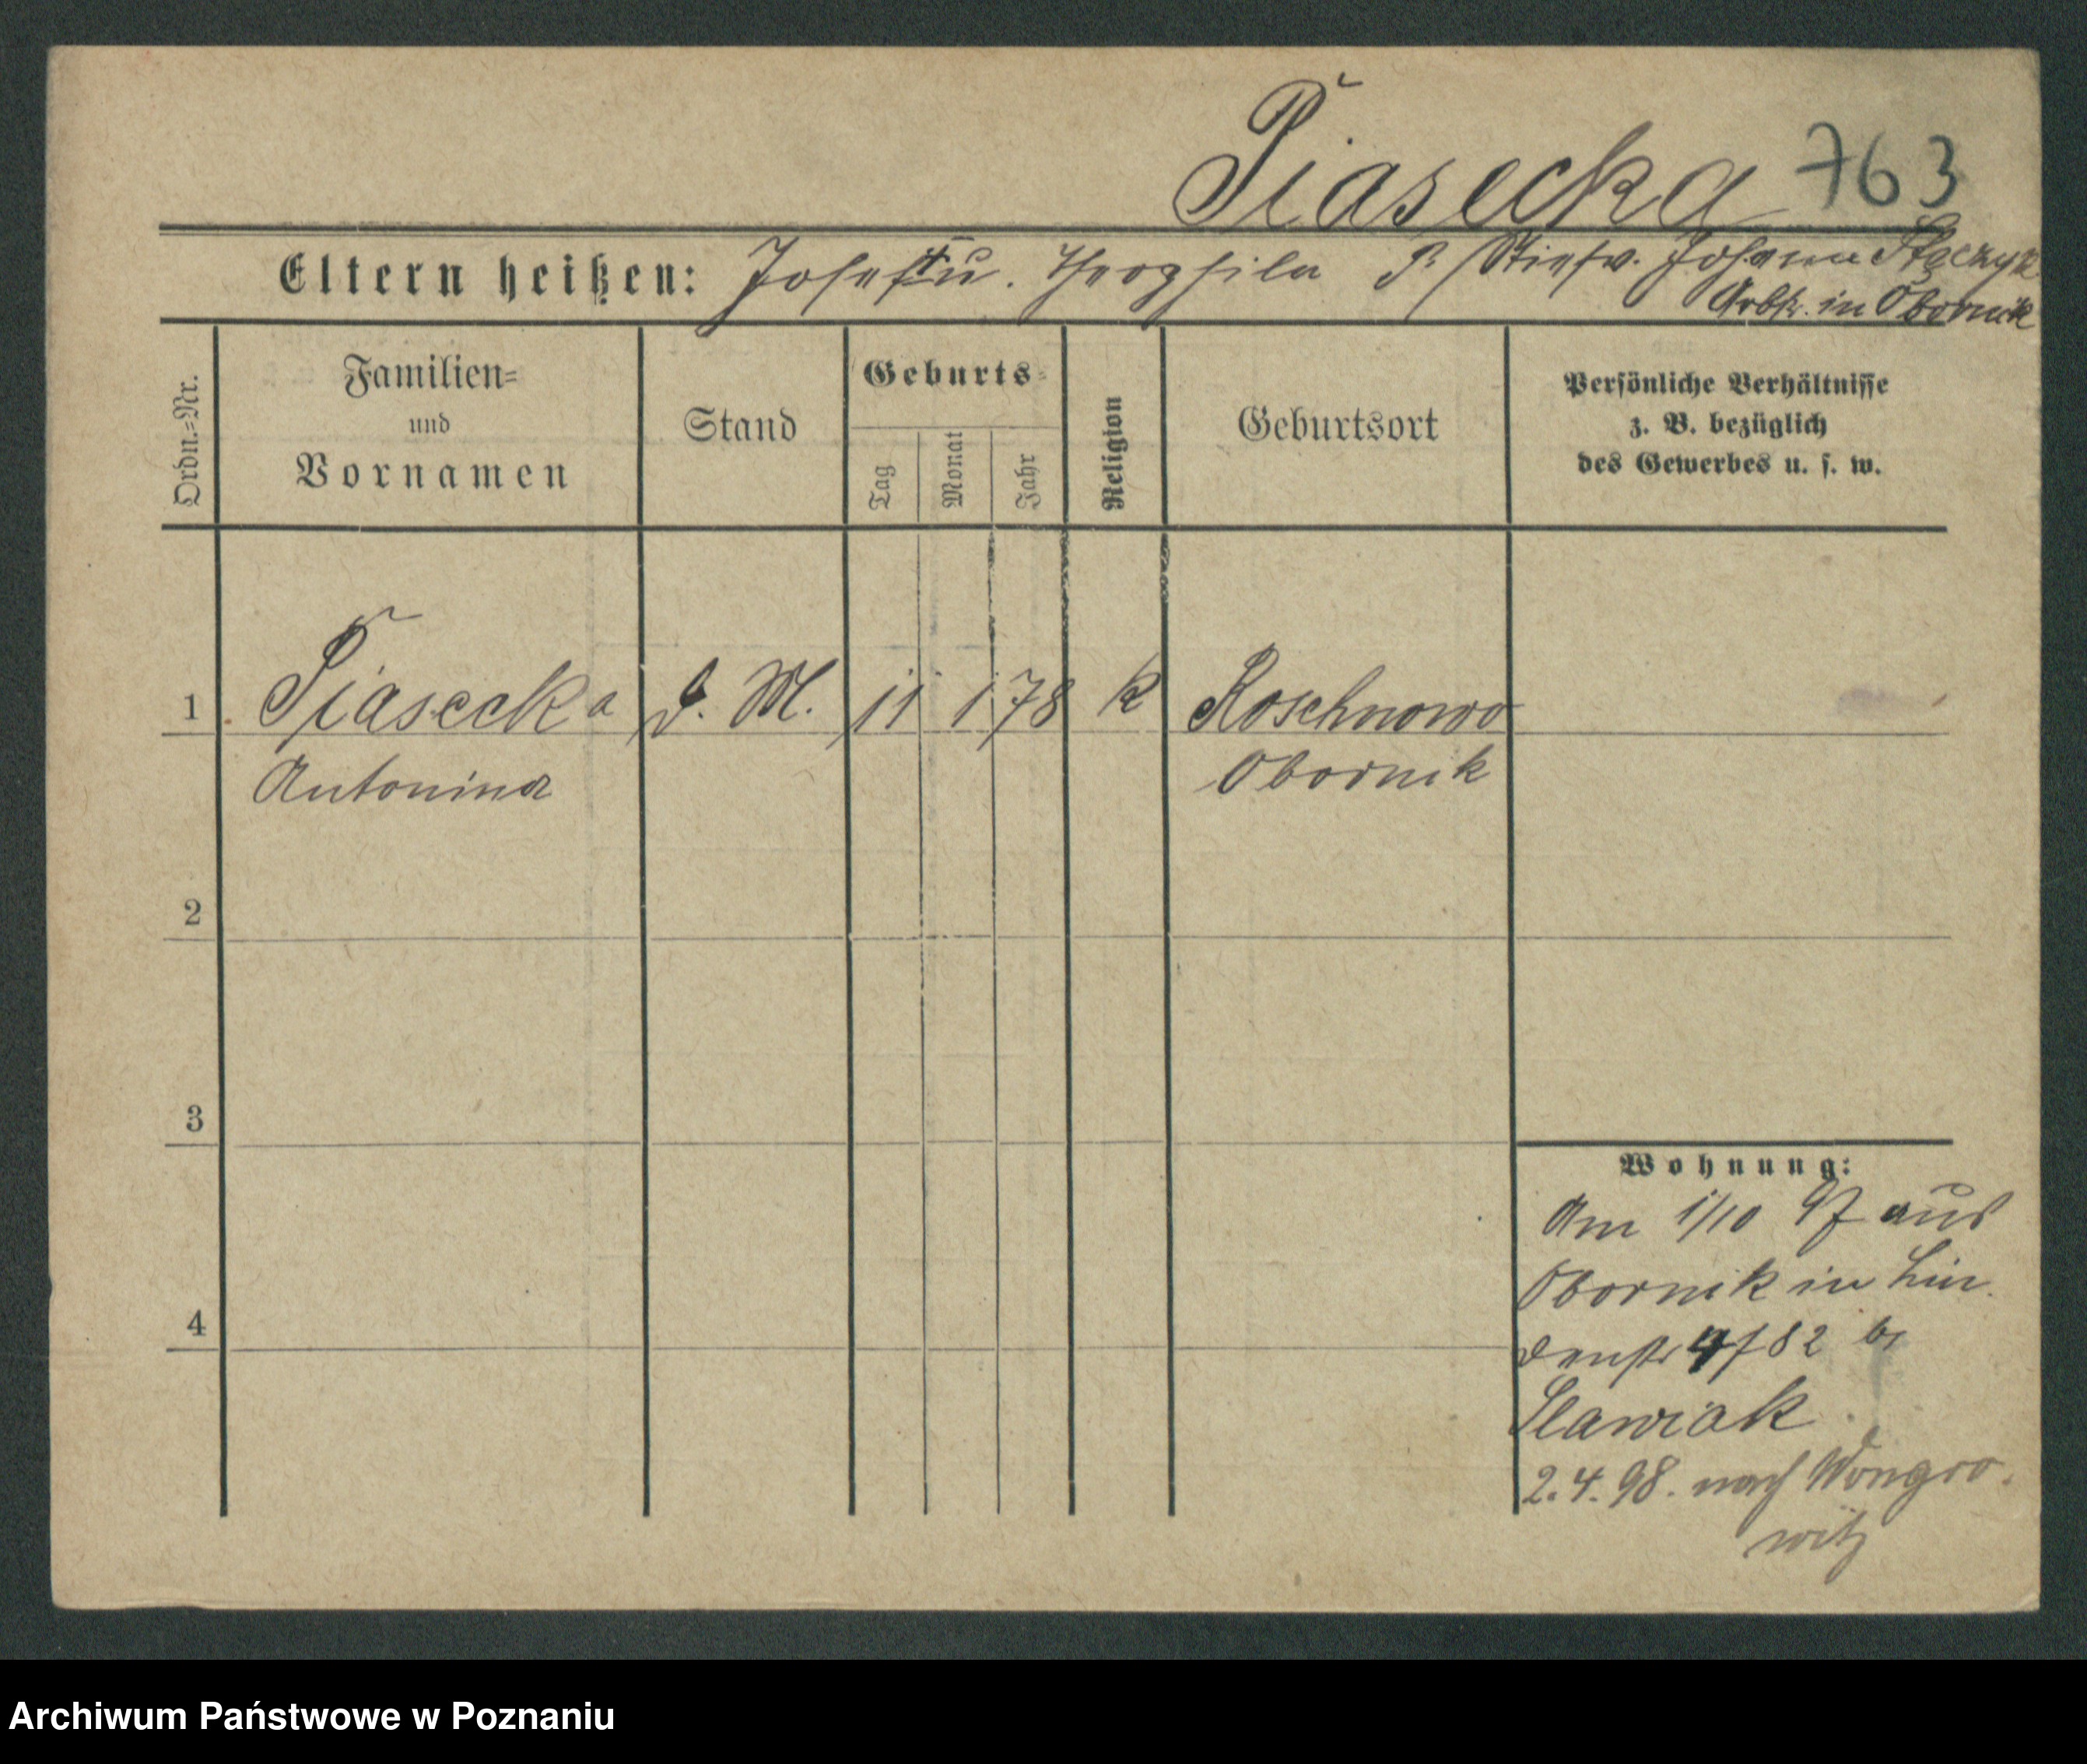 Piasecka 763
Eltern heißen: Josef † u. Theophila P. / Stiefv. Johann Stęczyk
Arbtr. in Obornik
Ordn.=Nr.
Familien=
und
Vornamen
Stand
Geburts=
Tag
Monat
Jahr
Religion
Geburtsort
Persönliche Verhältnisse
z. B. bezüglich
des Gewerbes u. s. w.
1 Piasecka d. M. 11 1 78 k Roschnowo
Antonina Obornik
2
3
4
Wohnung:
Am 1/10 97 aus
Obornik in Lin
denstr 4/82 bei
Slawiak
2.4.98. nach Wongro-
witz
Archiwum Państwowe w Poznaniu